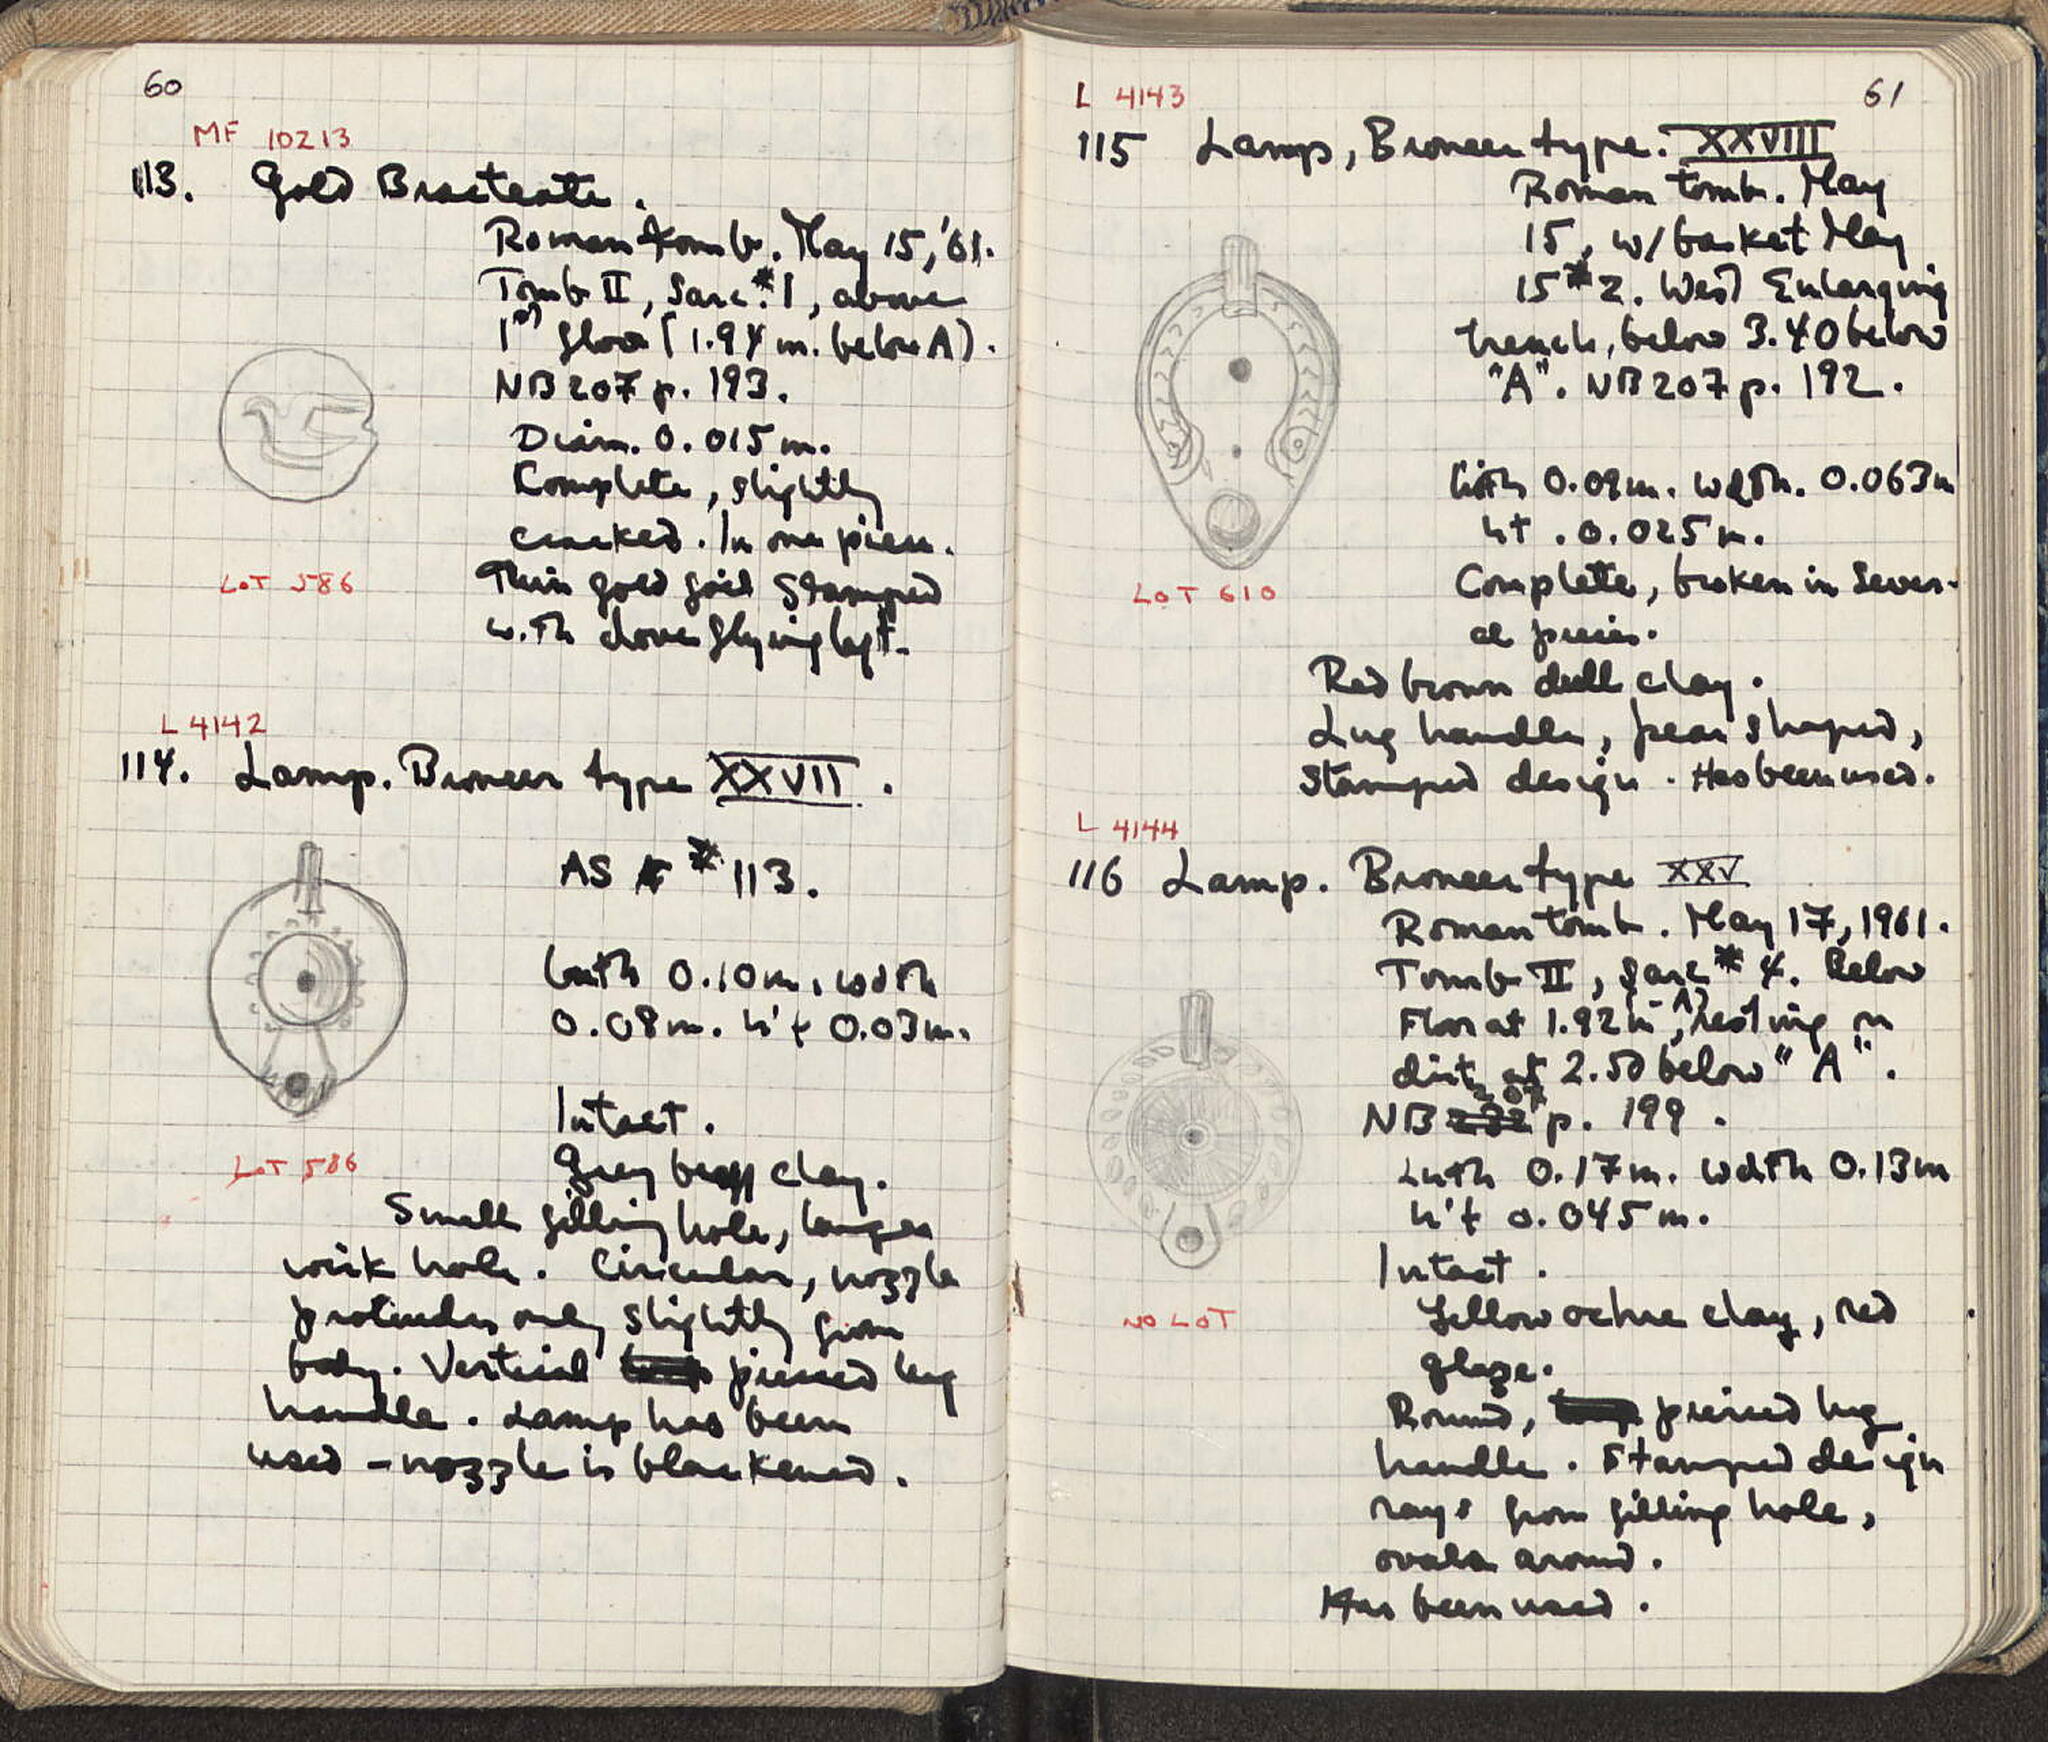 60
MF 10213
113. Gold Bracteate.
Roman tomb. May 15, '61.
Tomb II, Sarc. #1, above
1st floor (1.94 m. below A).
NB 207 p. 193.
Diam. 0.015 m.
Complete, slightly
cracked. In one piece.
LOT 586
Thin gold foil stamped
with dove flying left.
L 4142
114. Lamp. Broneer type XXVII.
AS # 113.
lnth 0.10 m. wdth
0.08 m. h't 0.03 m.
Intact.
LOT 586
Grey buff clay.
Small filling hole, larger
wick hole. Circular, nozzle
protrudes only slightly from
body. Vertical pierced lug
handle. Lamp has been
used - nozzle is blackened.
61
L 4143
115 Lamp, Broneer type. XXVIII
Roman tomb. May
15, w/ basket May
15 #2. West Enlarging
trench, below 3.40 below
"A". NB 207 p. 192.
lnth 0.09 m. wdth. 0.063 m
ht. 0.025 m.
LOT 610
Complete, broken in sever-
al pieces.
Red brown dull clay.
Lug handle, pear shaped,
stamped design. Has been used.
L 4144
116 Lamp. Broneer type XXV
Roman tomb. May 17, 1961.
Tomb II, Sarc # 4. Below
Floor at 1.92 m (-A), resting on
dirt at 2.50 below "A".
NB 207 p. 199.
Lnth 0.17 m. wdth 0.13 m
h't 0.045 m.
Intact.
NO LOT
Yellow ochre clay, red
glaze.
Round, pierced lug
handle. Stamped design
rays from filling hole,
ovals around.
Has been used.